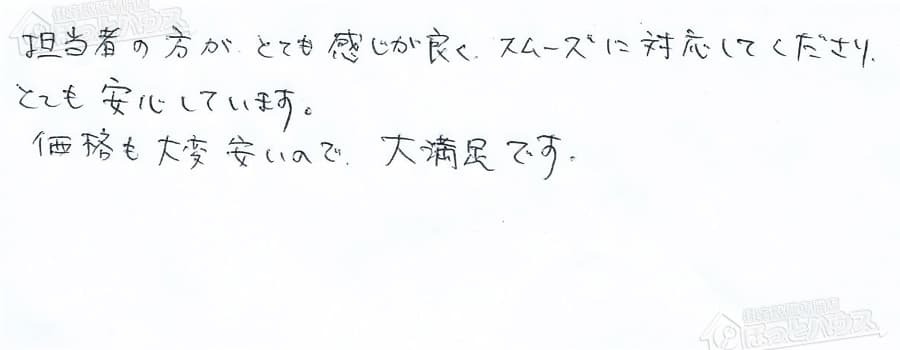 担当者の方が、とても感じが良く、スムーズに対応してくださり、
とても安心しています。
価格も大変安いので、大満足です。
ほっとハウス